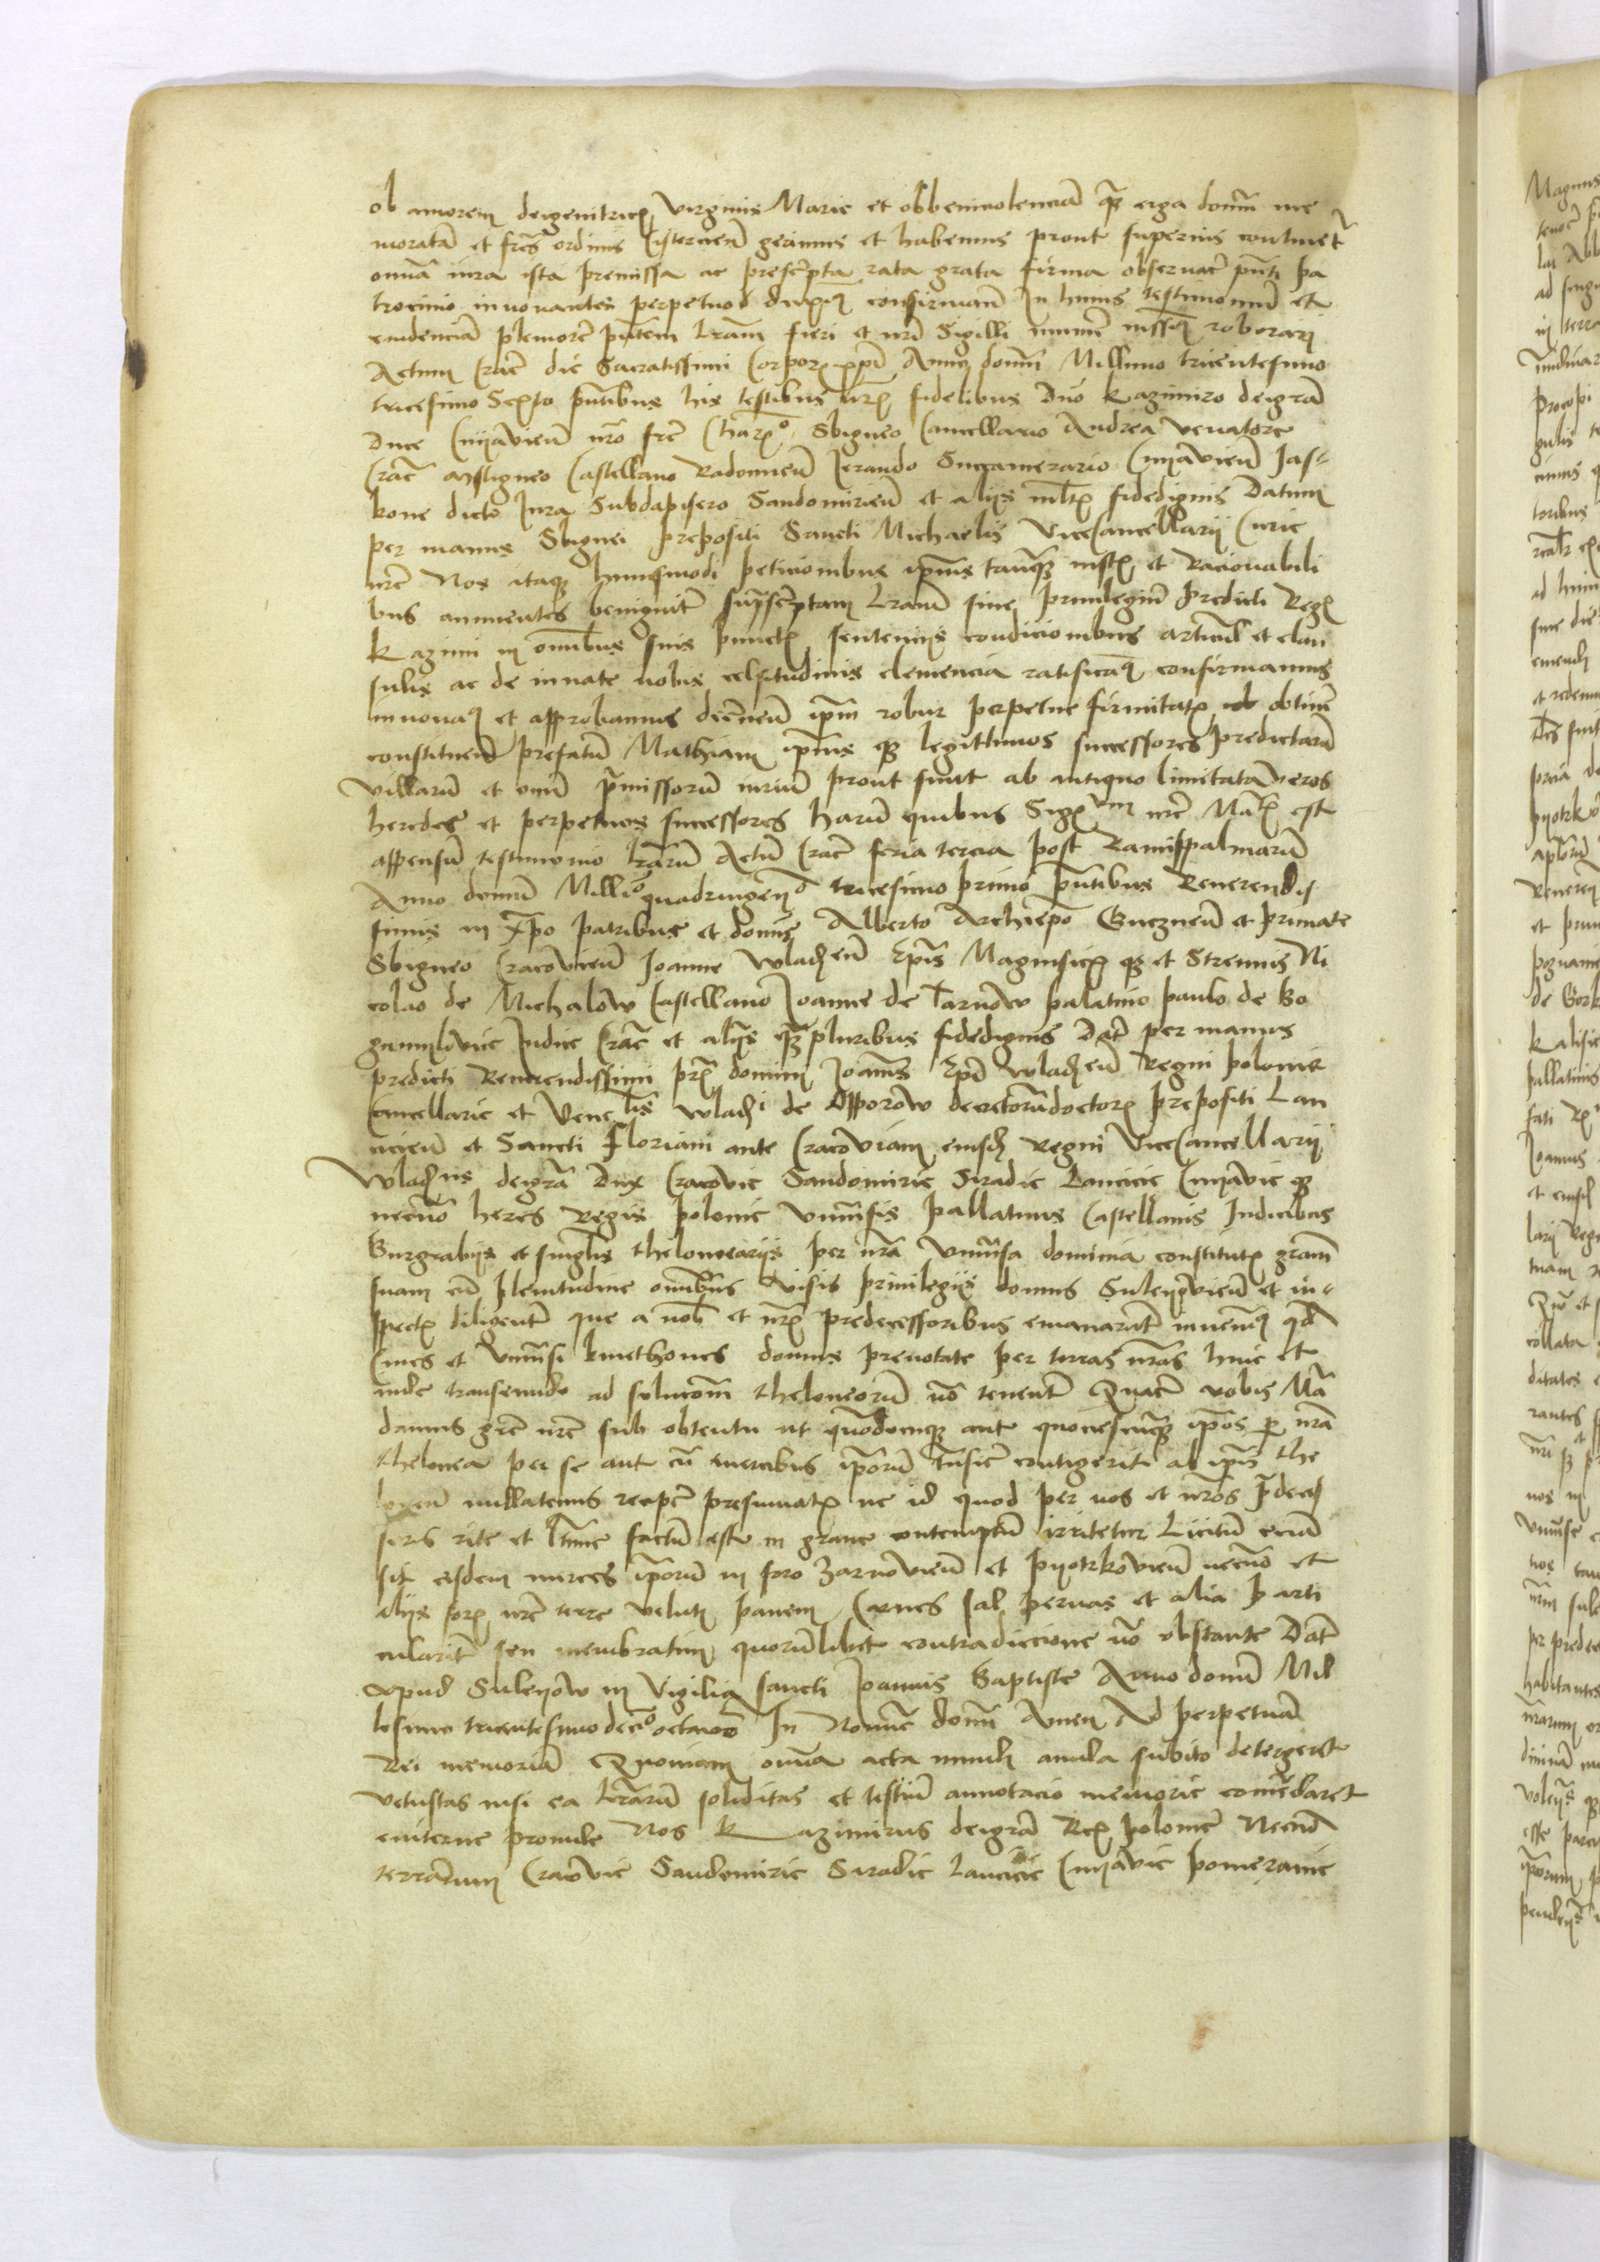 ob amorem deigenitricis virginis Marie et ob beniuolenciam quam erga domum me
moratam et fres ordinis Cistercien gerimus et habemus prout superius continetr
omnia iura ista premissa ac prescripta rata grata firma obseruare pnti pa
trocinio innouantes perpetuo duximus confirmanda In huius testimonium et
euidenciam pleniorem pntem lram fieri et nri Sigilli munimine iussimus roborari
Actum Crac die Sacratissimi Corporis xpi Anno domini Millimo tricentesimo
tricesimo Sexto pntibus his testibus nris fidelibus Duo Kazimiro deigra
Duce Cuijavien nro fre Charimo Sbigneo Cancellario Andrea venatore
Crac Mstigneo Castellano Radomien Jerando Succamerario Cuijavien Jas-
kone dicto Jura Subdapifero Sandomirien et alijs multis fidedignis Datum
per manus Sbignei prepositi Sancti Michaelis ViceCancellarij Curie
nre Nos itaque huiusmodi peticionibus ipius tanquam iustis et Racionabili
bus annuentes benigniter suprascriptam lram siue priuilegium predicti Regis
Kazimi in omnibus suis punctis sentencijs condicionibus articulis et clau
sulis ac de innate nobis celsitudinis clemencia ratificamus confirmamus
innouamus et approbamus decernen ipm robur perpetue firmitatis obtinere
constituen prefatum Mathiam ipius que legittimos successores predictarum
villarum et omnium premissorum iurium prout sunt ab antiquo limitata veros
heredes et perpetuos successores harum quibus Sigillum nre Matis est
appensum testimonio lrarum Actum Crac feria tercia post Ramispalmarum
Anno domini Millio quadringeno tricesimo primo pntibus Reuerendis
simis in xpo patribus et dominis Alberto Archiepo Gneznen et primate
Sbigneo Cracovien Joanne Wladen Epis Magnificis que et Strenuis Ni
colao de Michalow Castellano Joanne de Tarnow palatino paulo de Bo
gumilovice Judice Crac et alijs quampluribus fidedignis Dat per manus
predicti Reuerendissimi pris domini Joannis Epi wladen Regni polonie
Cancellarij et Venelis Wladi de Opporow decretorum doctoris prepositi Lan
cicien et Sancti Floriani ante Cracoviam eiusdem Regni ViceCancellarij
Wladus deigra Dux Cracovie Sandomirie Siradie Lancicie Cuijavie que
necno heres Regis polonie vniuersis pallatinis Castellanis Judicibus
Burgrabijs et singulis thelonearijs per nra vniuersa dominia constitutis gram
suam cum plenitudine omnibus visis priuilegijs domus Suleyovien et in-
spectis diligenter que a nobis et nris predecessoribus emanarunt inuenimus quod
Ciues et vniuersi kmethones domus prenotate per terras nras hinc et
inde transeundo ad solucionem theloneorum no tenentur Quare vobis Man
damus gre nre sub obtentu ut quandocunque aut quociescunque ipos per nra
thelonea per se aut cum mercibus iporum transire contigerit ab ipis the
loneum nullatenus recipere presumatis ne id quod per nos et nros predeces
sores rite et legitime factum est in graue contemptum irritetur Licitum eciam
sit eisdem merces iporum in foro Zarnovien et Pyotrkovien necno et
alijs foris nre terre veluti panem Carnes sal pernas et alia parti
culariter seu membratim quorumlibet contradiccione no obstante Dat
apud Suleyow in Vigilia sancti Joannis Baptiste Anno domini Mil
lesimo tricentesimo decimo octauo In Nomine domini Amen Ad perpetuam
Rei memoriam Quoniam omnia acta mundi emula subito detergeret
vetustas nisi ea lrarum soliditas et testium annotacio memorie comendaret
euiterne Proinde Nos Kazimirus deigra Rex polonie Necnon
terrarum Cracovie Sandomirie Siradie Lancicie Cuijavie pomeranie